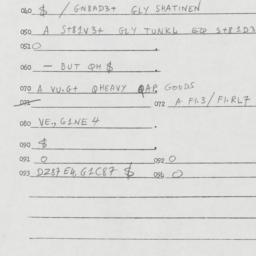 040 $ / GN8AD3+ GLY SHATINEN
050 A S+81V3+ GLY TUNKL EQ S+81D3
051 0 .
060 — BUT QH $ .
070 A VU.G+ QHEAVY QAP GOODS
071 072 A F1.3/F1.RL7
080 VE., G1NE 4 .
090 $ .
091 0 092 0
093 DZ87E4, G1C87 $ 096 0